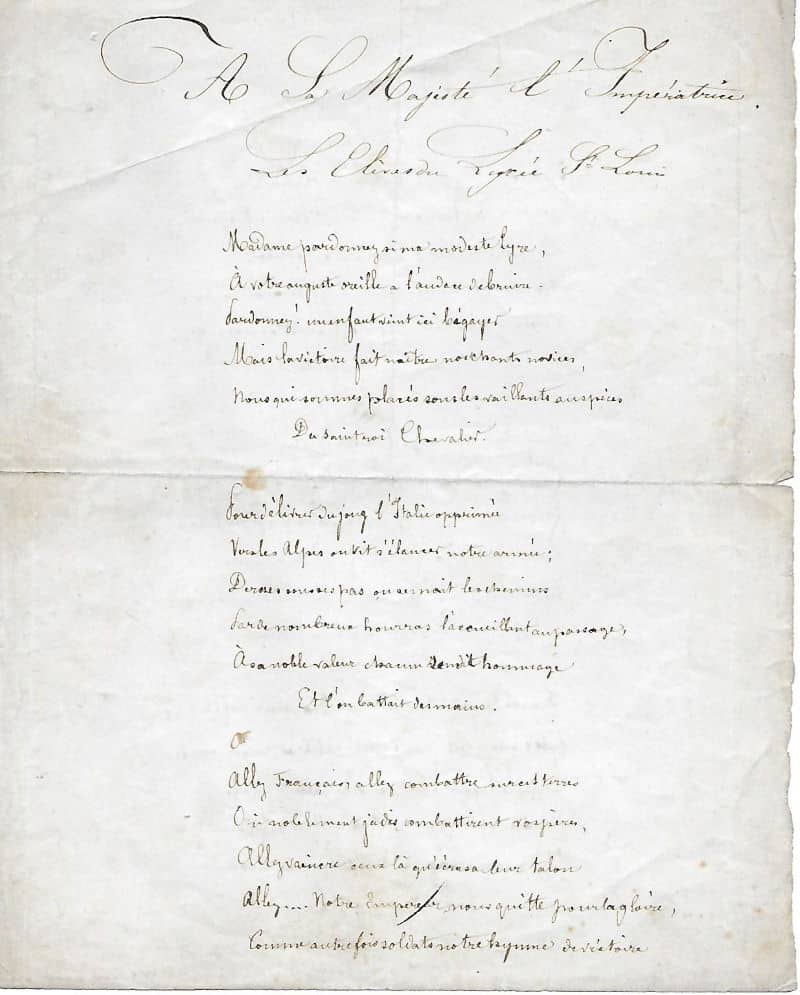 A Sa Majesté l'Impératrice.
Les Elèves du Lycée St Louis
Madame pardonnez si ma modeste lyre,
À votre auguste oreille a l'audace de bruire.
Pardonnez! un enfant vient ici bégayer
Mais la victoire fait naître nos chants novices,
Nous qui sommes placés sous les vaillants auspices
Du saint roi Chevalier.
Pour délivrer du joug l'Italie opprimée
Vers les Alpes on vit s'élancer notre armée;
De roses mes pas on semait les chemins
Par de nombreux hourras l'accueillent au passage,
À sa noble valeur chacun rendit hommage
Et l'on battait des mains.
Allez Français, allez combattre sur ces terres
Où noblement jadis combattirent vos pères,
Allez vaincre ceux là qu'écrasa leur talon
Allez.... Notre Empereur nous quitte pour la gloire,
Comme autrefois soldats notre hymne de victoire